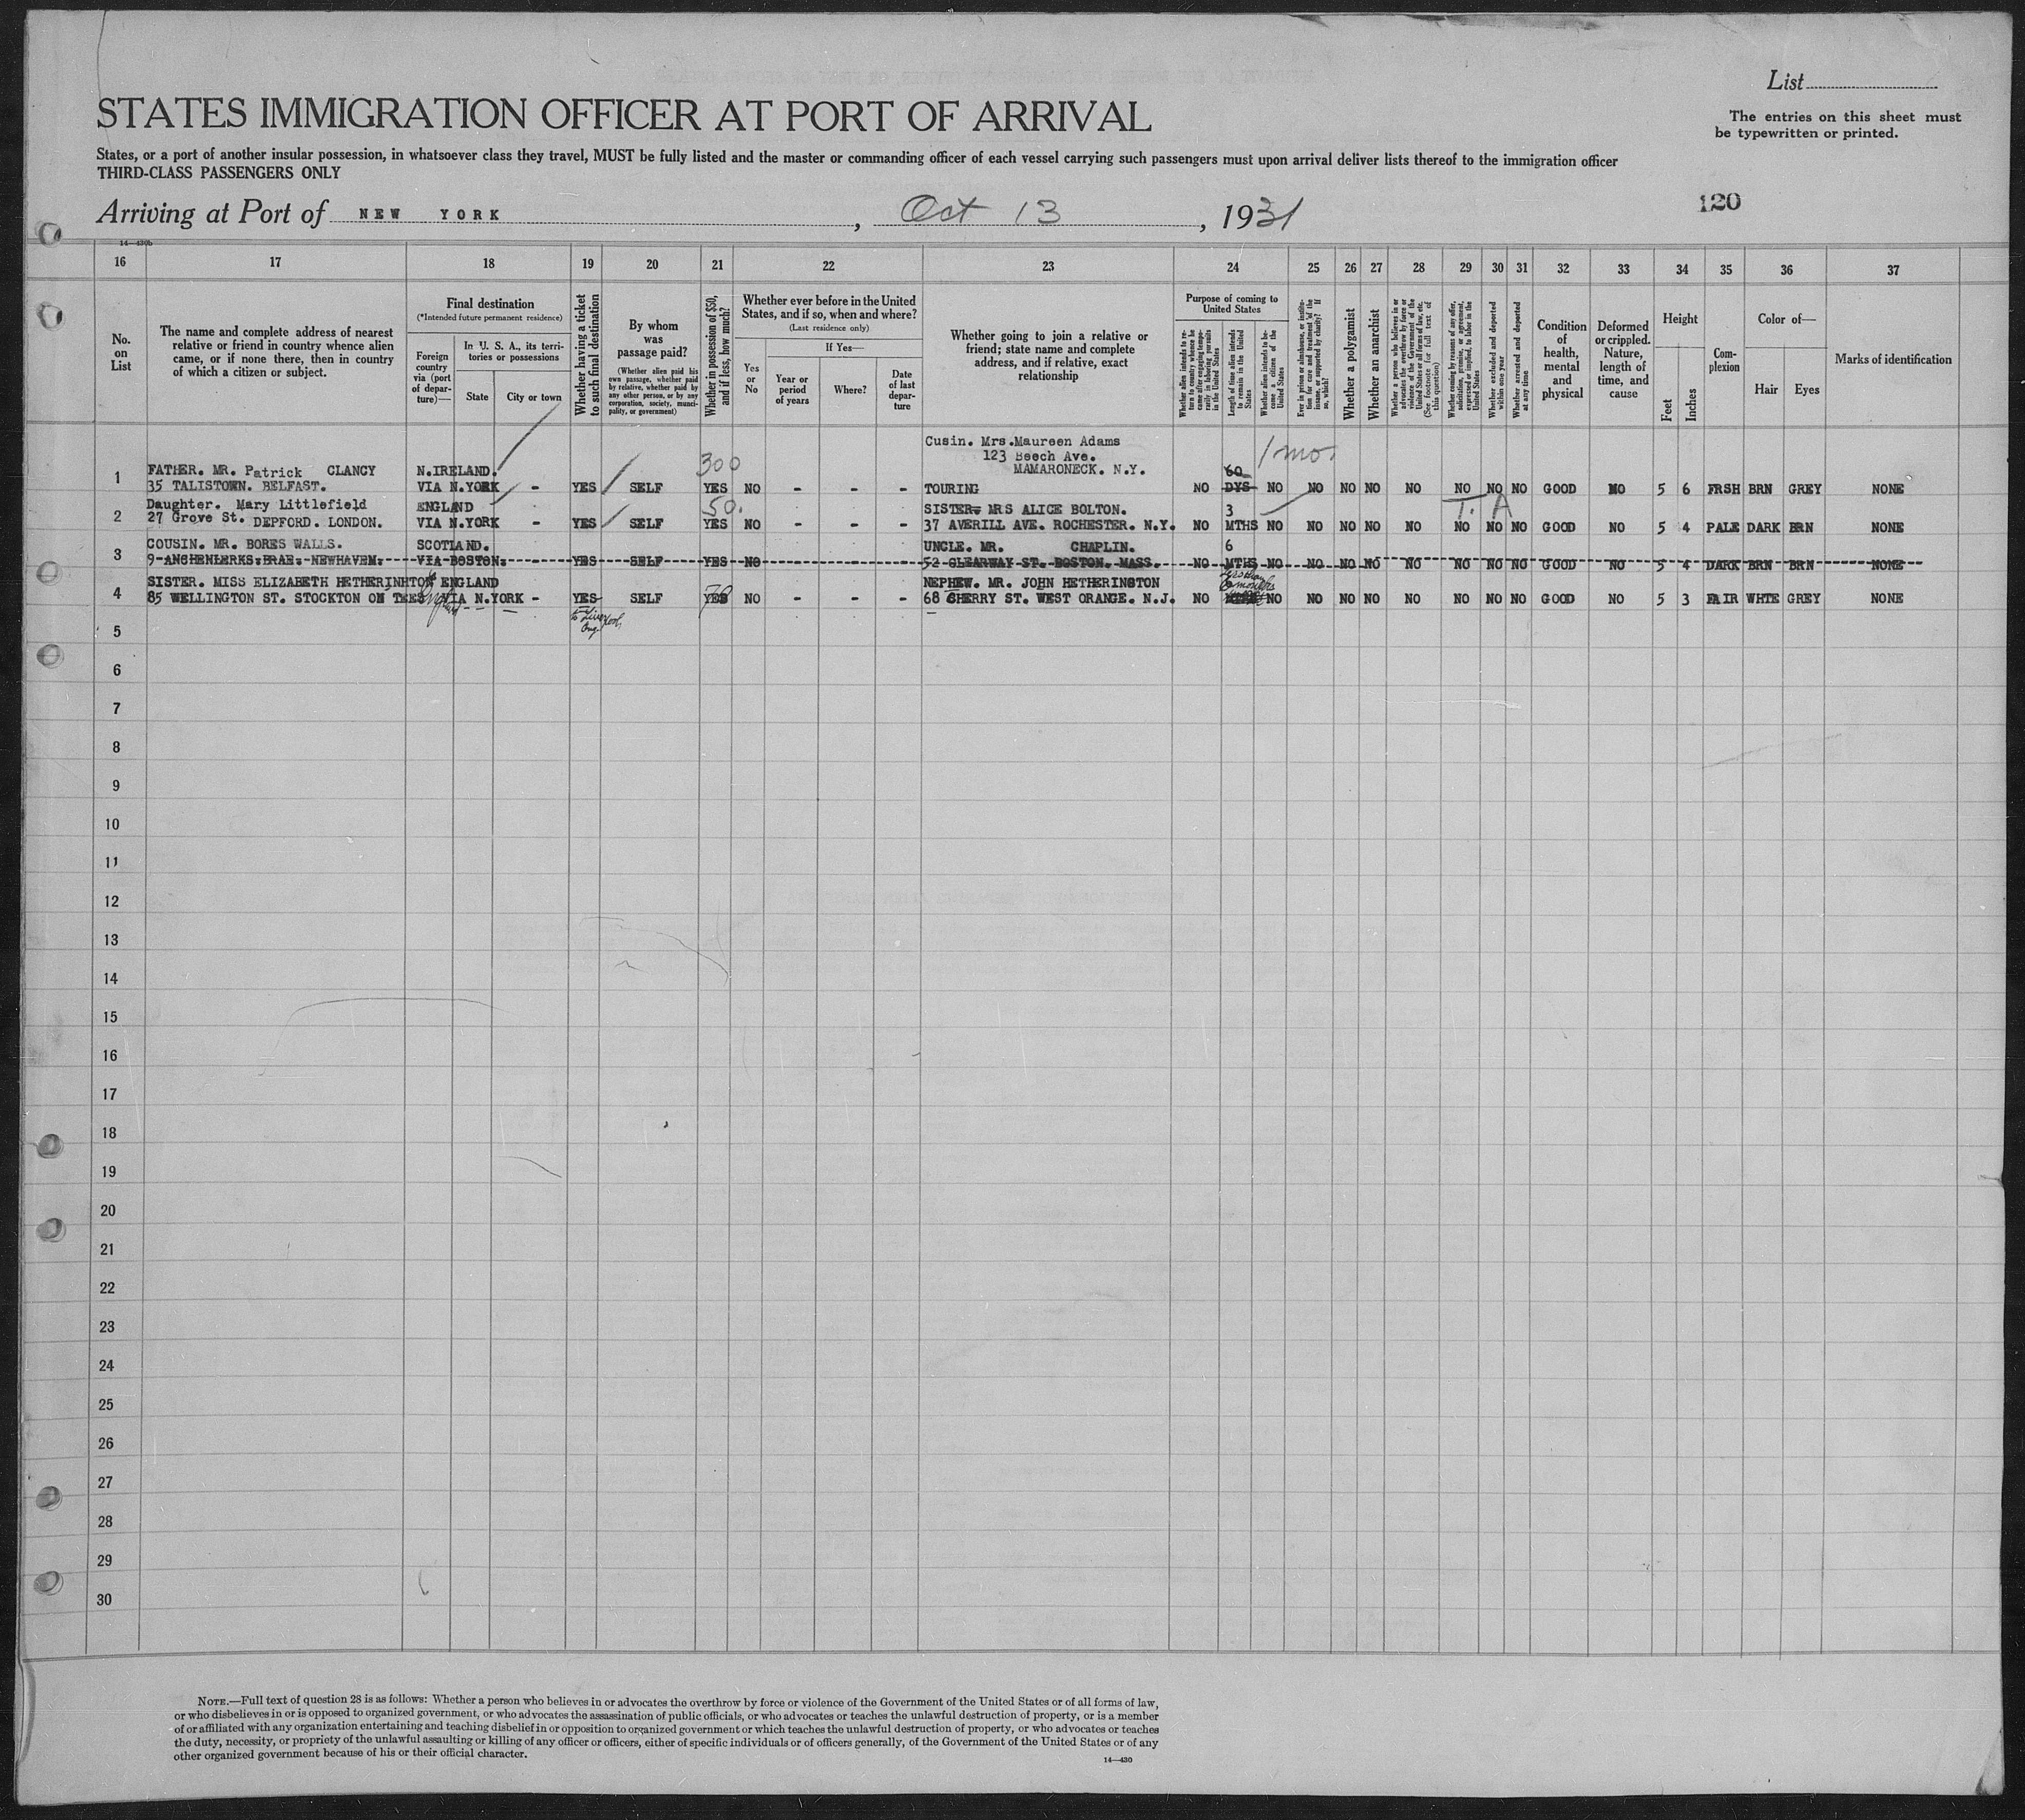 List
STATES IMMIGRATION OFFICER AT PORT OF ARRIVAL
The entries on this sheet must
be typewritten or printed.
States, or a port of another insular possession, in whatsoever class they travel, MUST be fully listed and the master or commanding officer of each vessel carrying such passengers must upon arrival deliver lists thereof to the immigration officer
THIRD-CLASS PASSENGERS ONLY
Arriving at Port of NEW YORK, Oct 13, 1931
120
14—430b
16 17 18 19 20 21 22 23 24 25 26 27 28 29 30 31 32 33 34 35 36 37
No.
on
List
The name and complete address of nearest
relative or friend in country whence alien
came, or if none there, then in country
of which a citizen or subject.
Final destination
(*Intended future permanent residence)
Foreign
country
via (port
of depar-
ture)—
In U. S. A., its terri-
tories or possessions
State
City or town
Whether having a ticket
to such final destination
By whom
was
passage paid?
(Whether alien paid his
own passage, whether paid
by relative, whether paid by
any other person, or by any
corporation, society, munci-
pality, or government)
Whether in possession of $50,
and if less, how much?
Whether ever before in the United
States, and if so, when and where?
(Last residence only)
Yes
or
No
If Yes—
Year or
period
of years
Where?
Date
of last
depar-
ture
Whether going to join a relative or
friend; state name and complete
address, and if relative, exact
relationship
Purpose of coming to
United States
Whether alien intends to re-
turn to country whence he
came after engaging tempo-
rarily in laboring pursuits
in the United States
Length of time alien intends
to remain in the United
States
Whether alien intends to be-
come a citizen of the
United States
Ever in prison or almshouse, or institu-
tion for care and treatment of the
insane, or supported by charity? If
so, which?
Whether a polygamist
Whether an anarchist
Whether a person who believes in or
advocates the overthrow by force or
violence of the Government of the
United States or all forms of law, etc.
(See footnote for full text of
this question)
Whether coming by reason of any offer,
solicitation, promise, or agreement,
expressed or implied, to labor in the
United States
Whether excluded and deported
within one year
Whether arrested and deported
at any time
Condition
of
health,
mental
and
physical
Deformed
or crippled.
Nature,
length of
time, and
cause
Height
Feet
Inches
Com-
plexion
Color of—
Hair
Eyes
Marks of identification
Cusin. Mrs.Maureen Adams
123 Beech Ave. 1 mo.
FATHER. MR. Patrick CLANCY N.IRELAND. 300 MAMARONECK. N.Y. 60
1 35 TALISTOWN. BELFAST. VIA N.YORK - YES SELF YES NO - - - TOURING NO DYS NO NO NO NO NO NO NO NO GOOD NO 5 6 FRSH BRN GREY NONE
Daughter. Mary Littlefield ENGLAND 50. SISTER MRS ALICE BOLTON. 3 T. A
2 27 Grove St. DEPFORD. LONDON. VIA N.YORK - YES SELF YES NO - - - 37 AVERILL AVE. ROCHESTER. N.Y. NO MTHS NO NO NO NO NO NO NO NO GOOD NO 5 4 PALE DARK BRN NONE
COUSIN. MR. BORES WALLS. SCOTLAND. UNCLE. MR. CHAPLIN. 6
3 9 ANCHENLERKS.BRAE. NEWHAVEN. VIA BOSTON. YES SELF YES NO 52 CLEARWAY ST. BOSTON. MASS. NO MTHS NO NO NO NO NO NO NO NO GOOD NO 5 4 DARK BRN BRN NONE
SISTER. MISS ELIZABETH HETHERINHTON ENGLAND NEPHEW. MR. JOHN HETHERINGTON
4 85 WELLINGTON ST. STOCKTON ON TEES VIA N.YORK - YES SELF YES NO - - - 68 CHERRY ST. WEST ORANGE. N.J. NO NO NO NO NO NO NO NO NO GOOD NO 5 3 FAIR WHTE GREY NONE
to Liverpool,
Eng
5
6
7
8
9
10
11
12
13
14
15
16
17
18
19
20
21
22
23
24
25
26
27
28
29
30
NOTE.—Full text of question 28 is as follows: Whether a person who believes in or advocates the overthrow by force or violence of the Government of the United States or of all forms of law,
or who disbelieves in or is opposed to organized government, or who advocates the assassination of public officials, or who advocates or teaches the unlawful destruction of property, or is a member
of or affiliated with any organization entertaining and teaching disbelief in or opposition to organized government or which teaches the unlawful destruction of property, or who advocates or teaches
the duty, necessity, or propriety of the unlawful assaulting or killing of any officer or officers, either of specific individuals or of officers generally, of the Government of the United States or of any
other organized government because of his or their official character.
14—430